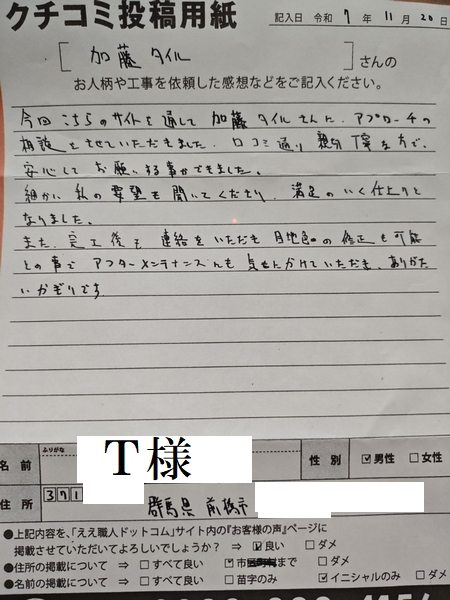 クチコミ投稿用紙
記入日 令和 7 年 11 月 20 日
[ 加藤タイル ] さんの
お人柄や工事を依頼した感想などをご記入ください。
今回こちらのサイトを通して加藤タイルさんに、アプローチの
相談をさせていただきました。口コミ通り親切丁寧な方で、
安心してお願いする事ができました。
細かい私の要望も聞いてくださり、満足のいく仕上りと
なりました。
また、完工後も連絡をいただき目地色の修正も可能
との事で アフターメンテナンスにも気をかけていただき、ありがた
いかぎりです。
ふりがな
名前 T様 性別 ☑男性 □女性
住所 371 群馬県 前橋市
●上記内容を、「ええ職人ドットコム」サイト内の『お客様の声』ページに
掲載させていただいてよろしいでしょうか? ⇒ ☑良い □ダメ
●住所の掲載について ⇒ □すべて良い ☑市まで □ダメ
●名前の掲載について ⇒ □すべて良い □苗字のみ ☑イニシャルのみ □ダメ